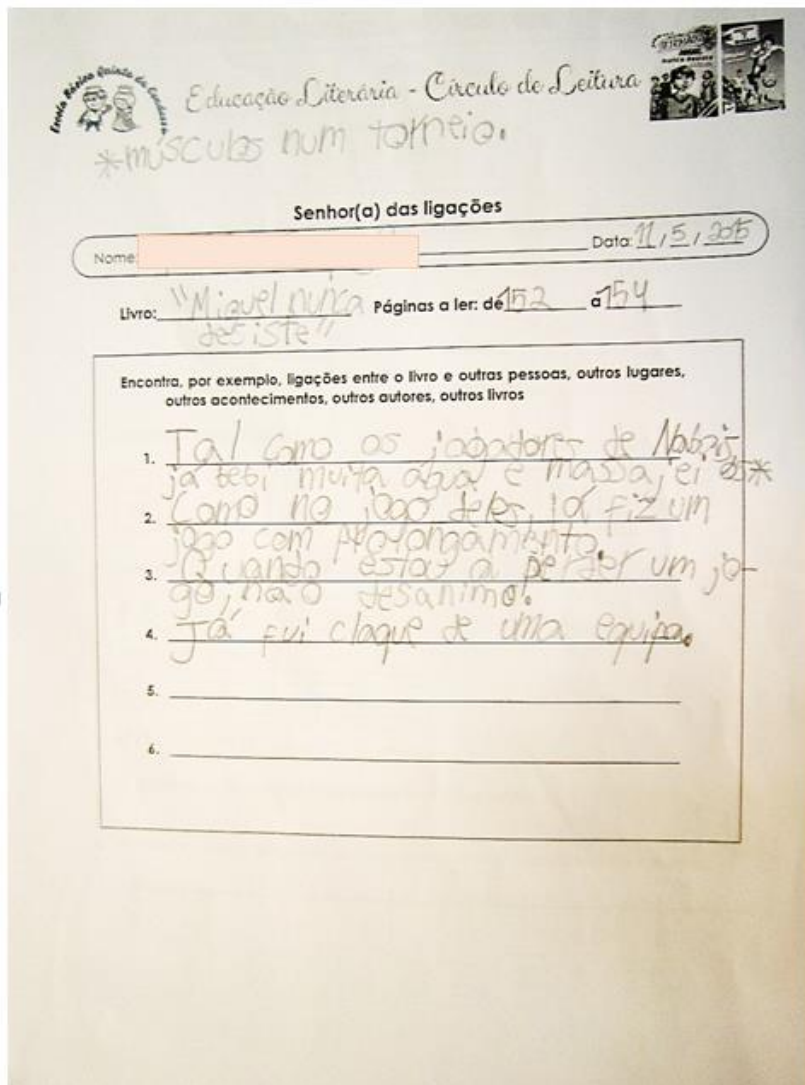 Escola Básica Quinta da
Educação Literária - Círculo de Leitura
*músculos num torneio.
Senhor(a) das ligações
Nome: Data: 11/5/2015
Livro: "Miguel nunca desiste" Páginas a ler: de 152 a 154
Encontra, por exemplo, ligações entre o livro e outras pessoas, outros lugares,
outros acontecimentos, outros autores, outros livros
1. Tal como os jogadores de
já bebi muita água e massajei os*
2. Como no jogo deles, já fiz um
jogo com prolongamento.
3. Quando estou a perder um jo-
go, não desanimo.
4. Já fui claque de uma equipa.
5.
6.